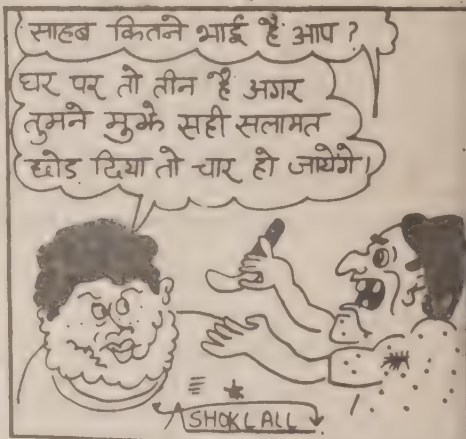 साहब कितने भाई हैं आप ?
घर पर तो तीन हैं अगर
तुमने मुझे सही सलामत
छोड़ दिया तो चार हो जायेंगे।
ASHOKLALL